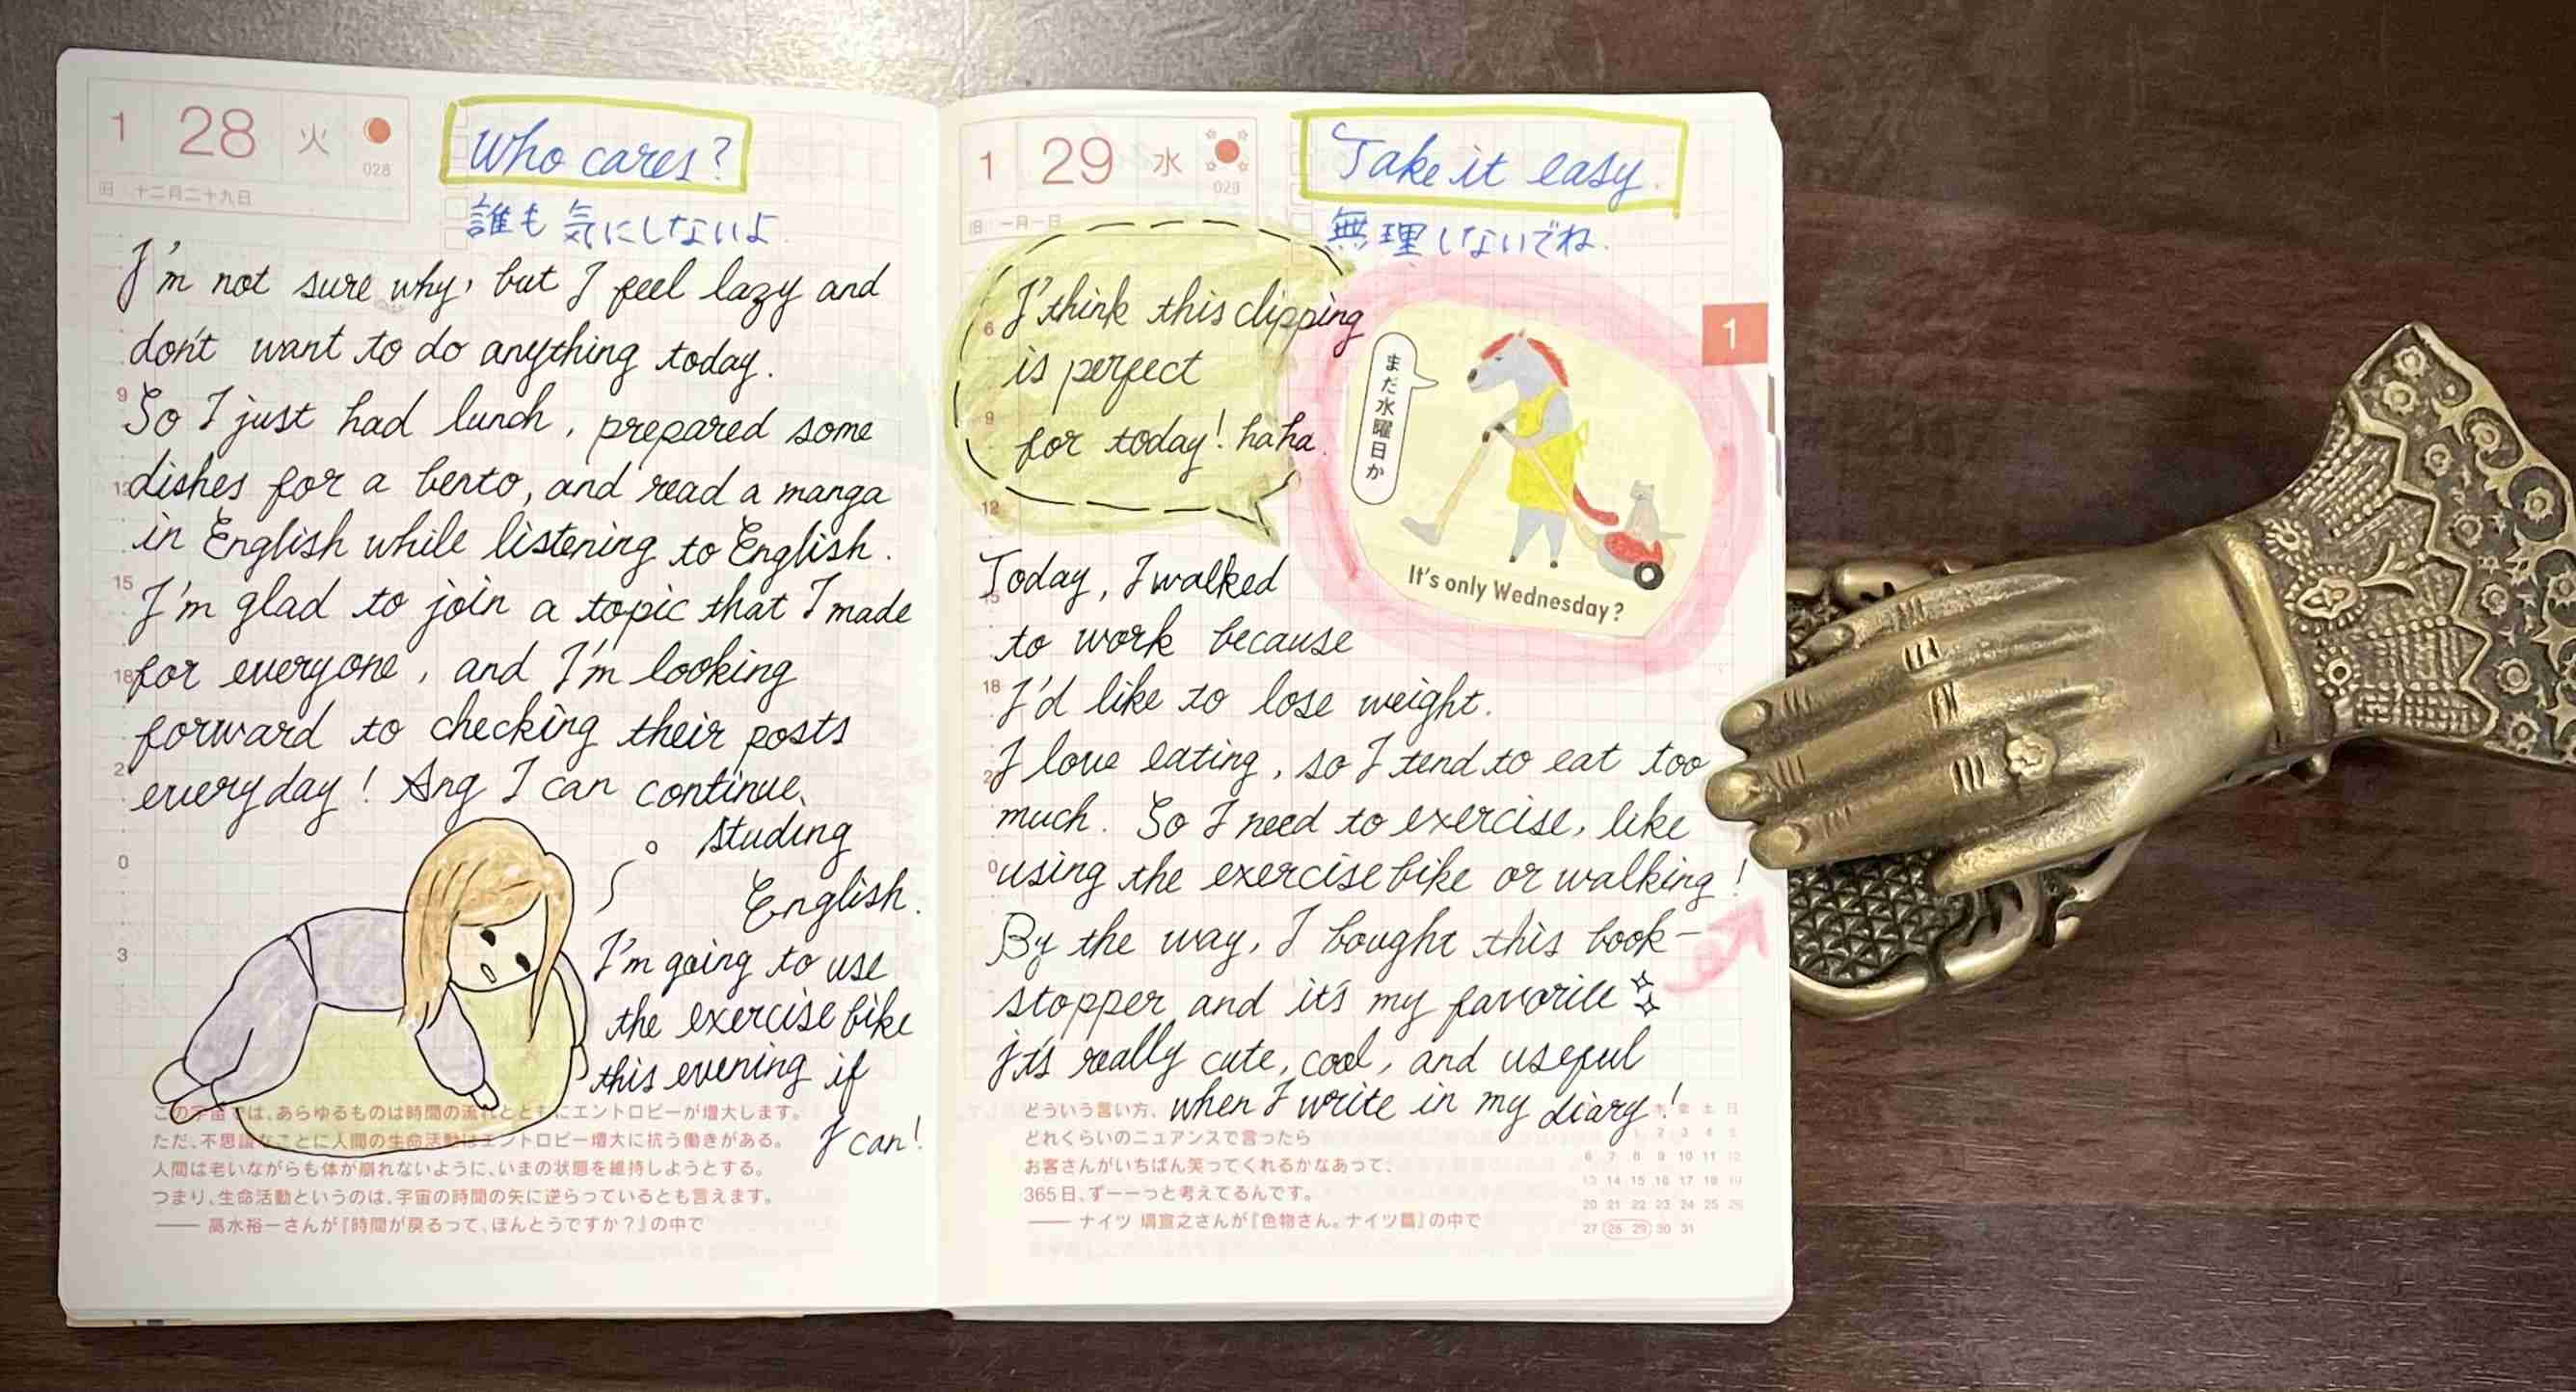 1 28 火
028
旧 十二月二十九日
Who cares?
誰も気にしないよ
I'm not sure why, but I feel lazy and
don't want to do anything today.
So I just had lunch, prepared some
dishes for a bento, and read a manga
in English while listening to English.
I'm glad to join a topic that I made
for everyone, and I'm looking
forward to checking their posts
every day! Ang I can continue
studing
English.
I'm going to use
the exercise bike
this evening if
I can!
9
12
15
18
2
0
3
この宇宙では、あらゆるものは時間の流れとともにエントロピーが増大します。
ただ、不思議なことに人間の生命活動はエントロピー増大に抗う働きがある。
人間は老いながらも体が崩れないように、いまの状態を維持しようとする。
つまり、生命活動というのは、宇宙の時間の矢に逆らっているとも言えます。
—— 高水裕一さんが『時間が戻るって、ほんとうですか?』の中で
1 29 水
029
旧 一月一日
Take it easy.
無理しないでね.
I think this clipping
is perfect
for today! haha.
まだ水曜日か
It's only Wednesday?
1
Today, I walked
to work because
I'd like to lose weight.
I love eating, so I tend to eat too
much. So I need to exercise, like
using the exercise bike or walking!
By the way, I bought this book-
stopper and it's my favorite
It's really cute, cool, and useful
when I write in my diary!
6
9
12
15
18
2
0
どういう言い方、
どれくらいのニュアンスで言ったら
お客さんがいちばん笑ってくれるかなあって、
365日、ずーーっと考えてるんです。
—— ナイツ 塙宣之さんが『色物さん。ナイツ篇』の中で
木 金 土 日
1 2 3 4 5
6 7 8 9 10 11 12
13 14 15 16 17 18 19
20 21 22 23 24 25 26
27 28 29 30 31